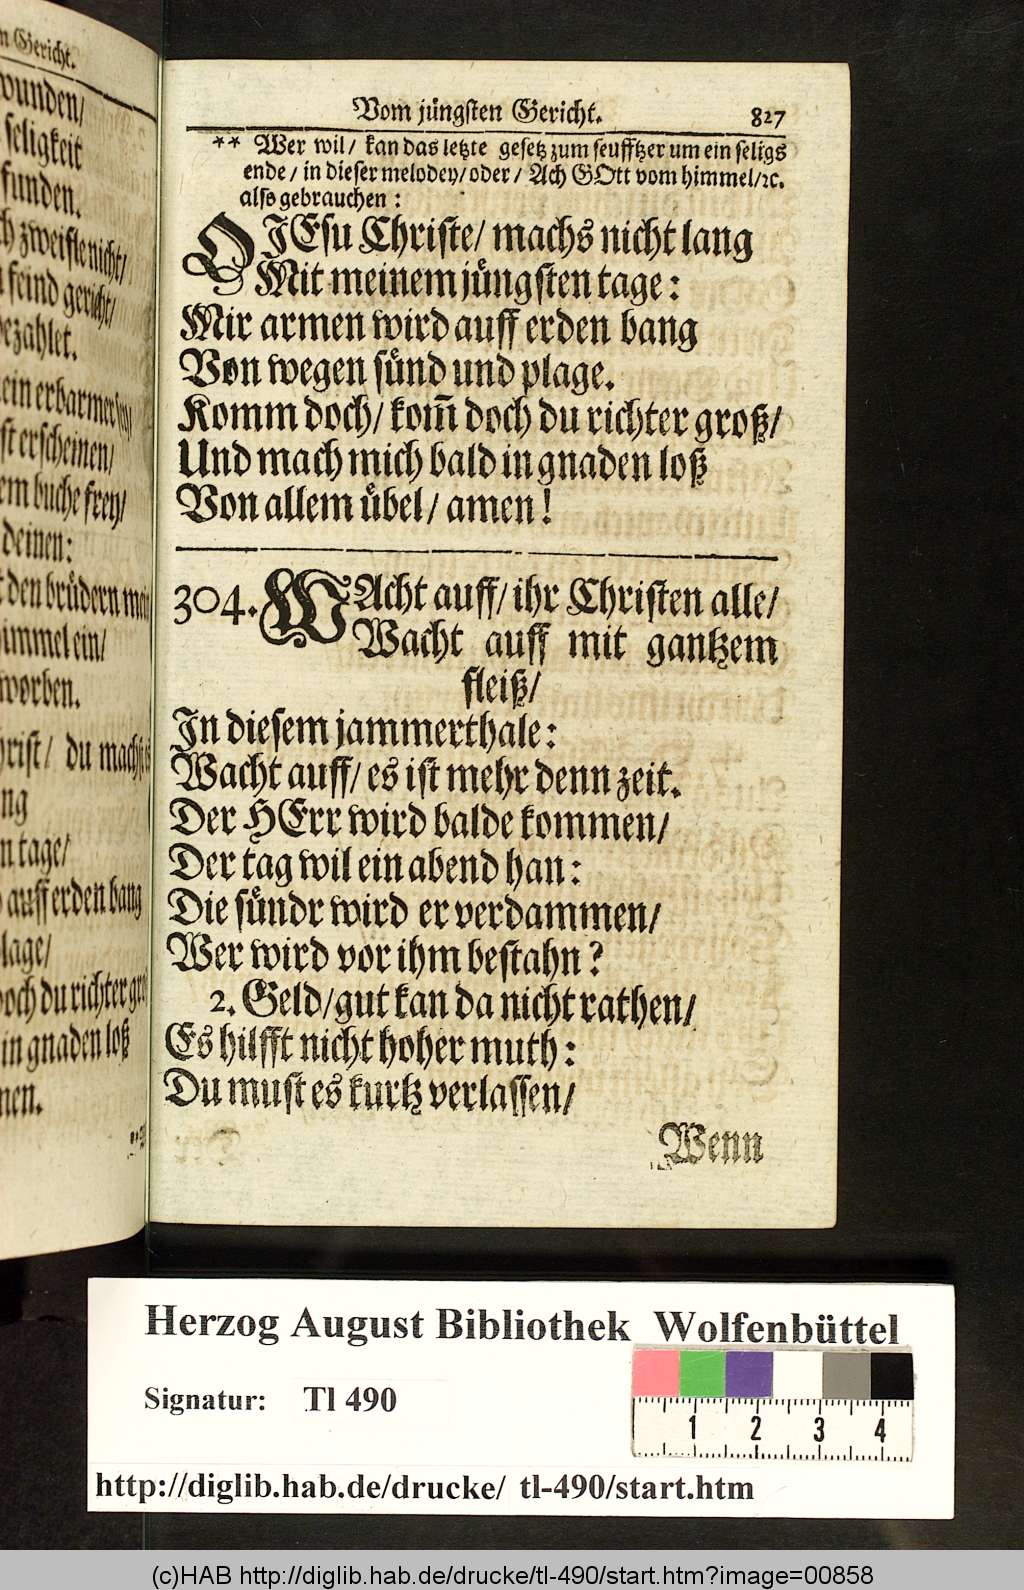 n Gericht.
wunden/
seligkeit
funden.
zweifle nicht/
feind gericht/
bezahlet.
ein erbarmer
erscheinen/
em buche frey/
deinen:
den brüdern mein
himmel ein/
worben.
hrist/ du machst es
ng
n tage/
auff erden bang
lage/
doch du richter gro
in gnaden loß
men.
Vom jüngsten Gericht. 827
** Wer wil/ kan das letzte gesetz zum seufftzer um ein seligs
ende/ in dieser melodey/ oder/ Ach GOtt vom himmel/ ꝛc.
also gebrauchen:
O JEsu Christe/ machs nicht lang
Mit meinem jüngsten tage:
Mir armen wird auff erden bang
Von wegen sünd und plage.
Komm doch/ kom̃ doch du richter groß/
Und mach mich bald in gnaden loß
Von allem übel/ amen!
304. WAcht auff/ ihr Christen alle/
Wacht auff mit gantzem
fleiß/
In diesem jammerthale:
Wacht auff/ es ist mehr denn zeit.
Der HErr wird balde kommen/
Der tag wil ein abend han:
Die sündr wird er verdammen/
Wer wird vor ihm bestahn?
2. Geld/ gut kan da nicht rathen/
Es hilfft nicht hoher muth:
Du must es kurtz verlassen/
Wenn
Herzog August Bibliothek Wolfenbüttel
Signatur: Tl 490
1 2 3 4
http://diglib.hab.de/drucke/ tl-490/start.htm
(c)HAB http://diglib.hab.de/drucke/tl-490/start.htm?image=00858